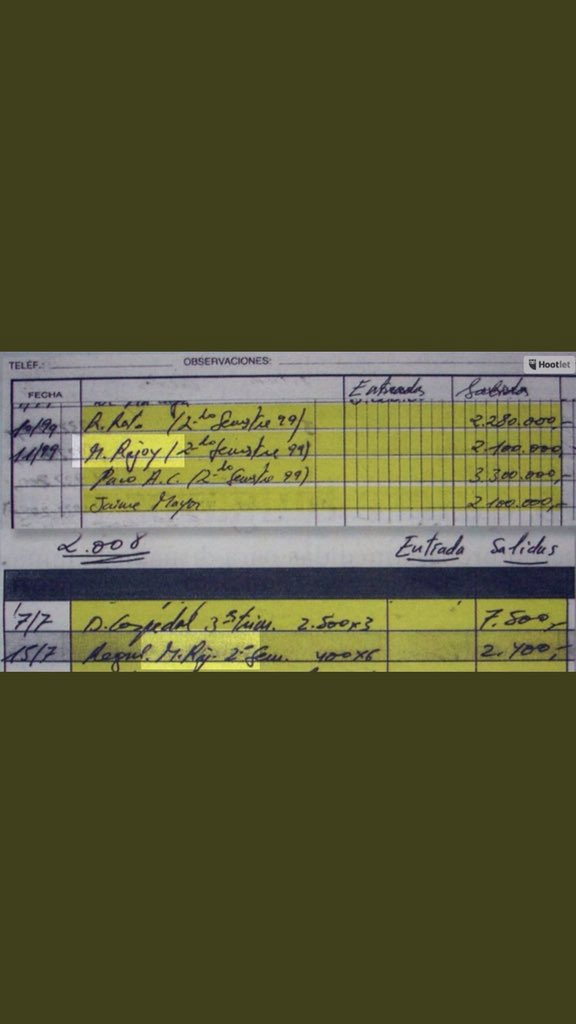 TELÉF.: OBSERVACIONES: Hootlet
FECHA Entrada Salida
10/99 R. Rato (2-do Semstre 99) 2.280.000,-
11/99 M. Rajoy (2-do Semstre 99) 2.100.000,-
Paco A.C. (2-do Semstre 99) 3.300.000,-
Jaime Mayor 2.100.000,-
2.008 Entrada Salidas
7/7 D. Cospedal 3º trim. 2.500x3 7.500,-
15/7 Regul. M. Raj. 2º Sem. 400x6 2.400,-